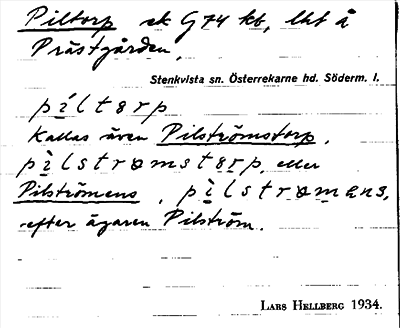 Piltorp ek G74 kb, lht å
Prästgården,
Stenkvista sn. Österrekarne hd. Söderm. l.
pìltɵrp
Kallas även Pilströmstorp,
pìlstrɵmstɵrp, eller
Pilströmens, pìlstrɵmens,
efter ägaren Pilström.
LARS HELLBERG 1934.